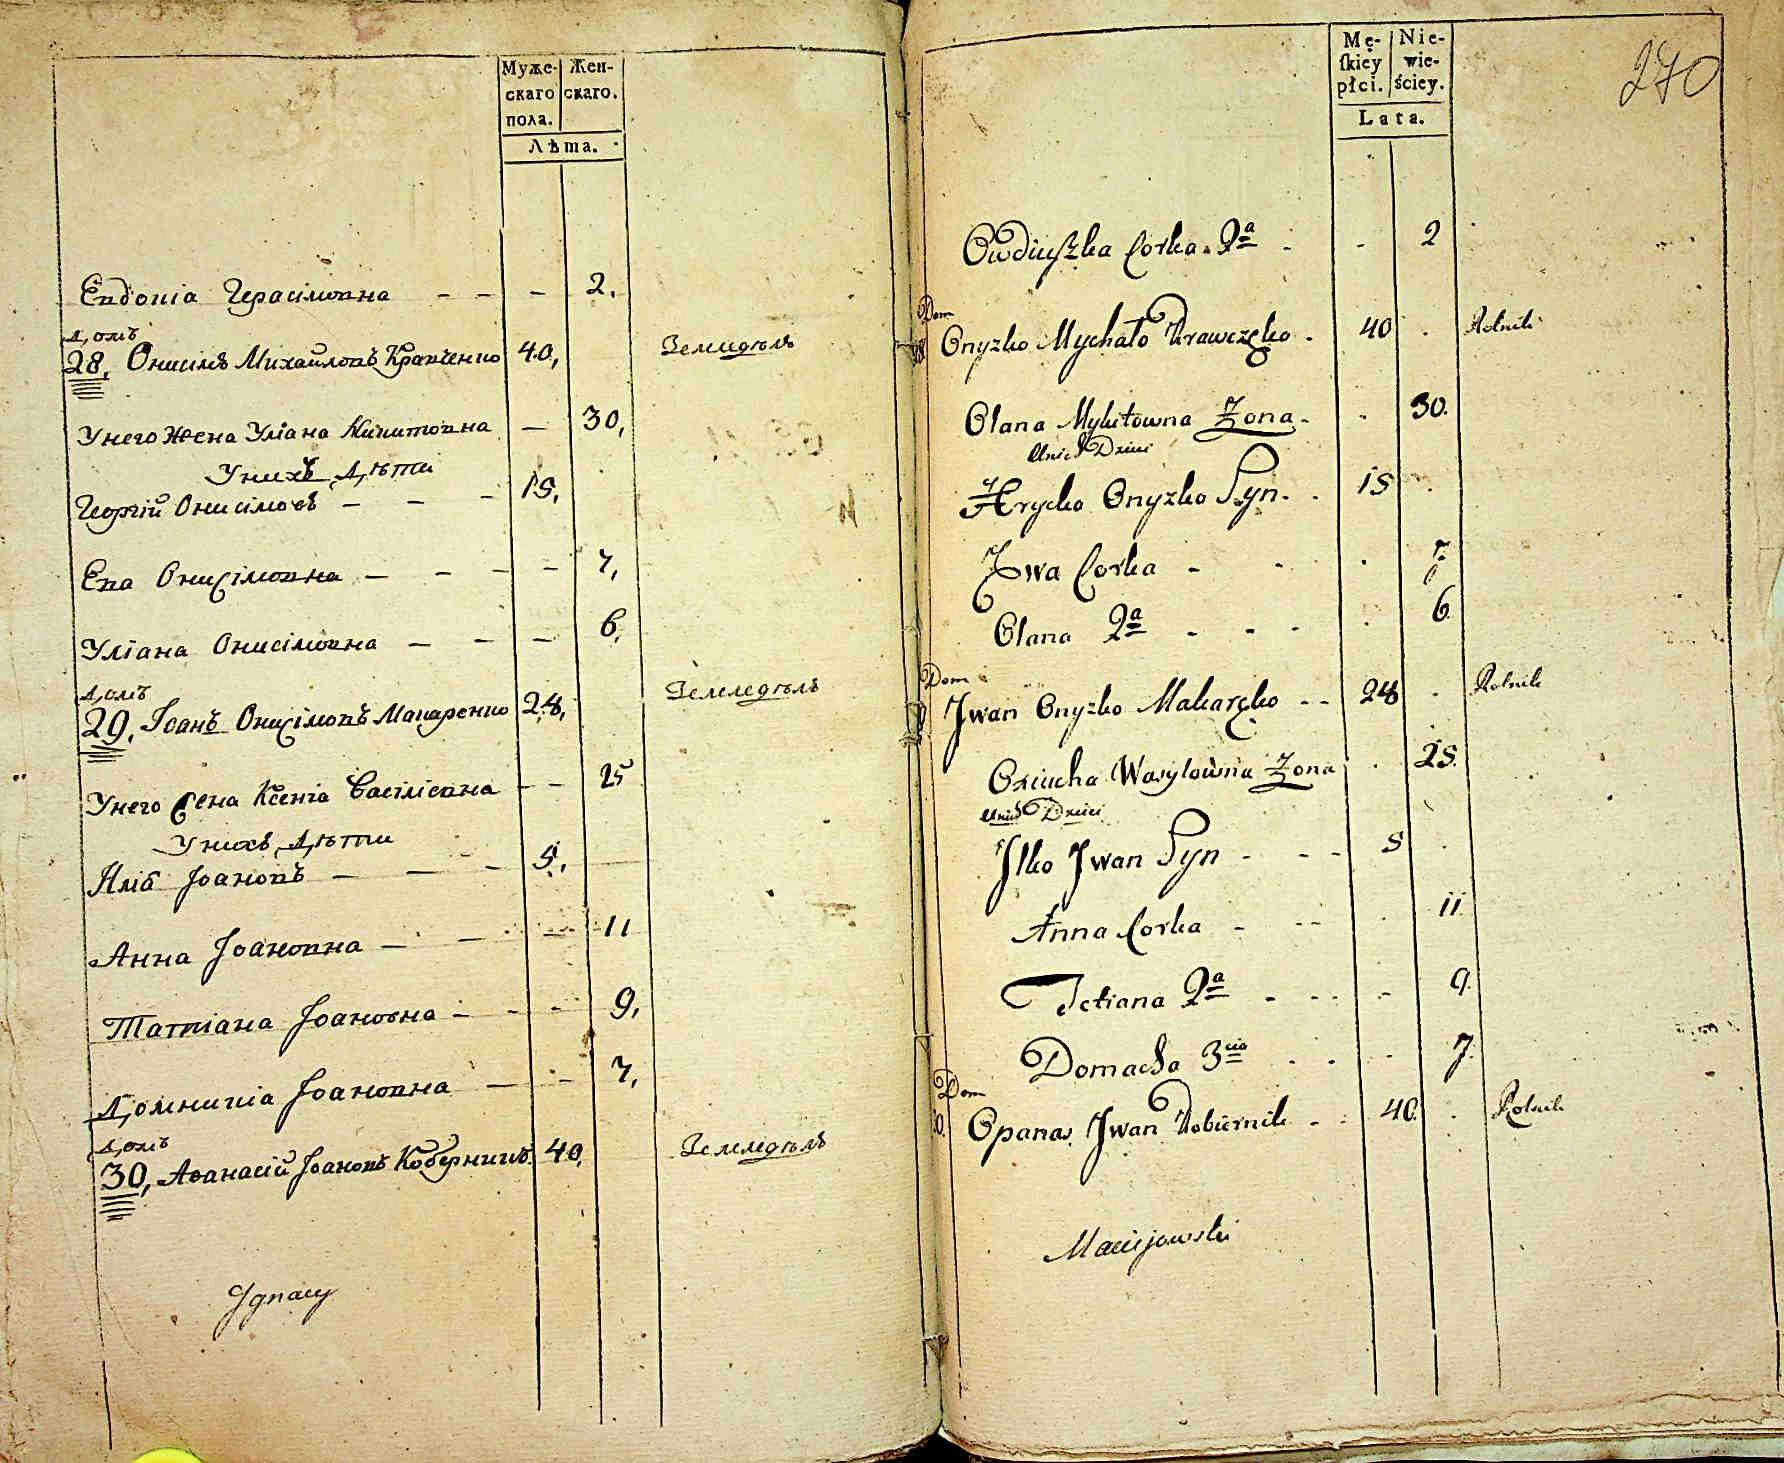 Муже-
скаго
пола.
Жен-
скаго.
Лѣта.
Евдопіа Герасімовна - - - 2,
Домъ
28, Онисимъ Михайловъ Кравченко 40, Земледѣлъ
Унего Жена Уліана Никитовна - 30,
Унихъ Дѣти
Георгій Онисімовъ - - - 15,
Ева Онисімовна - - - - 7,
Уліана Онисімовна - - - 6,
Домъ
29, Іоанъ Онисімовъ Макаренко 28, Земледѣлъ
Унего Жена Ксеніа Васіліевна - - 25
Унихъ Дѣти
Илія Іоановъ - - - 5,
Анна Іоановна - - - - 11
Татіана Іоановна - - - 9,
Домникіа Іоановна - - 7,
Домъ
30, Афанасій Іоановъ Коберникъ 40, Земледѣлъ
Ignacy
270
Mę-
skiey
płci.
Nie-
wie-
ściey.
Lata.
Owdiuszka Corka 2a - - 2
Dom
28 Onyzko Mychało Krawczęko - 40 . Rolnik
Olana Mykitowna Zona - . 30.
Unich Dzieci
Hrycko Onyzko Syn - . 15 .
Ewa Corka - - . 7
Olana 2a - - - . 6
Dom
Jwan Onyzko Makaręko - - 28 . Rolnik
Oxiucha Wasylowna Zona . 25.
Unich Dzieci
Jlko Jwan Syn - - - 5 .
Anna Corka - - - . 11.
Tetiana 2a - - - - 9.
Domacha 3cia - - - 7.
Dom
30. Opanas Jwan Kobiernik - - 40. . Rolnik
Maciejowski